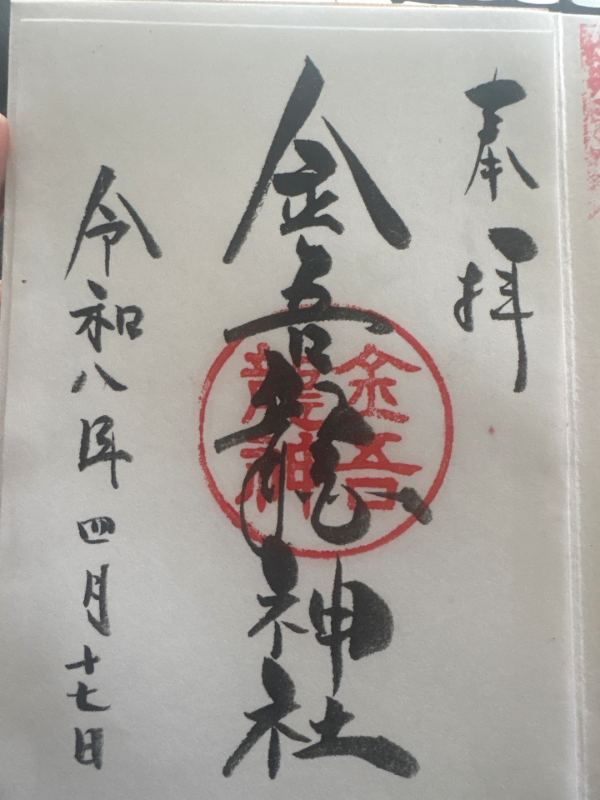 奉拝
金吾龍神社
金吾龍神
令和八年四月十七日